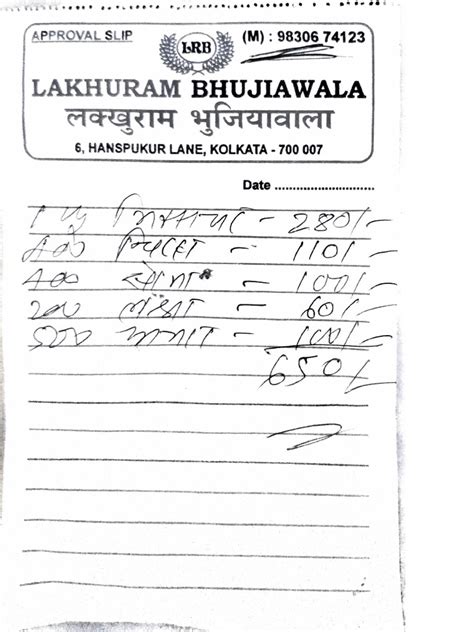 APPROVAL SLIP
LRB
(M) : 98306 74123
LAKHURAM BHUJIAWALA
लक्खुराम भुजियावाला
6, HANSPUKUR LANE, KOLKATA - 700 007
Date ..............................
- 280/-
400 - 110/-
400 - 100/-
200 - 60/-
500 - 100/-
650/